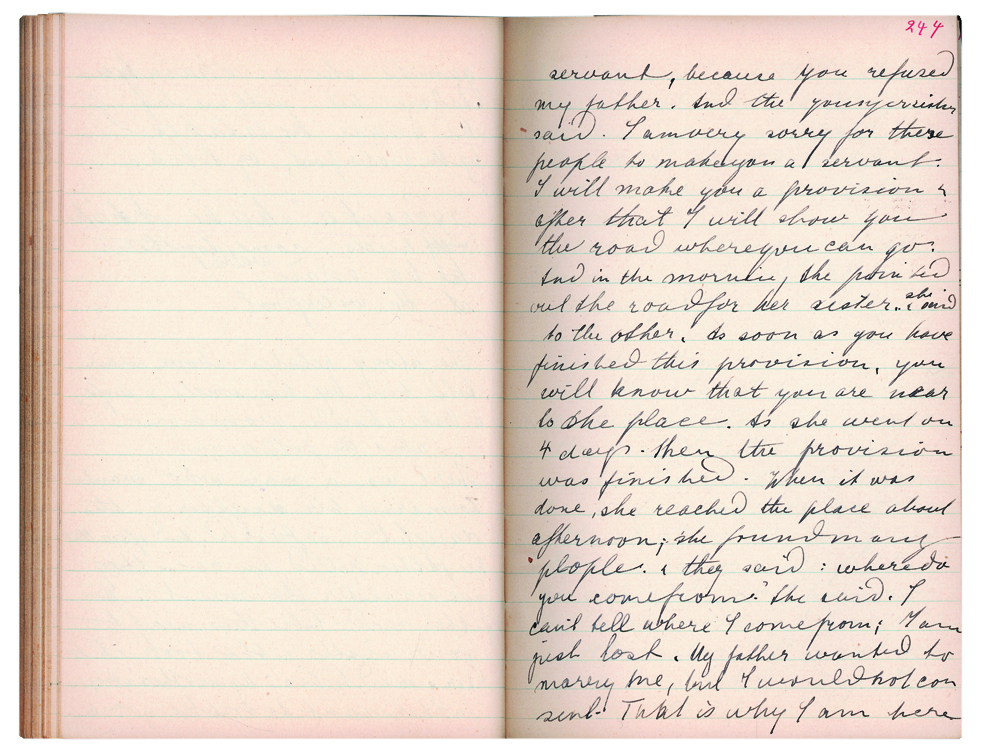 244
servant, because you refused
my father. And the youngersister
said. I amvery sorry for these
people to makeyou a servant.
I will make you a provision &
after that I will show you
the road whereyoucan go.
And in the morning, she pointed
out the roadfor her sister. & she said
to the other. As soon as you have
finished this provision, you
will know that you are near
to the place. As she went on
4 days. then the provision
was finished. When it was
done, she reached the place about
afternoon; she found many
plople. & they said : wheredo
you comefrom." She said. I
can't tell where I comefrom; I am
just lost. My father wanted to
marry me, but I wouldnot con
sent. That is why I am here